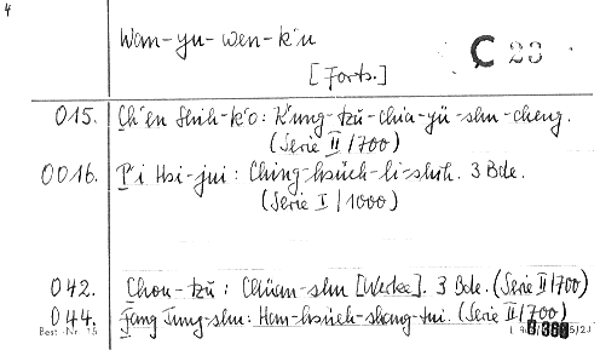 4
Wan-yu-wen-k'u
C 23
[Forts.]
015. Ch'en Shih-k'o: K'ung-tzŭ-chia-yü-shu-cheng.
(Serie II/700)
0016. P'i Hsi-jui: Ching-hsüeh-li-shih. 3 Bde.
(Serie I/1000)
042. Chou-tzŭ: Chüan-shu [Werke]. 3 Bde. (Serie II/700)
044. Fang Tung-shu: Han-hsüeh-shang-tui. (Serie II/700)
Best.-Nr. 15